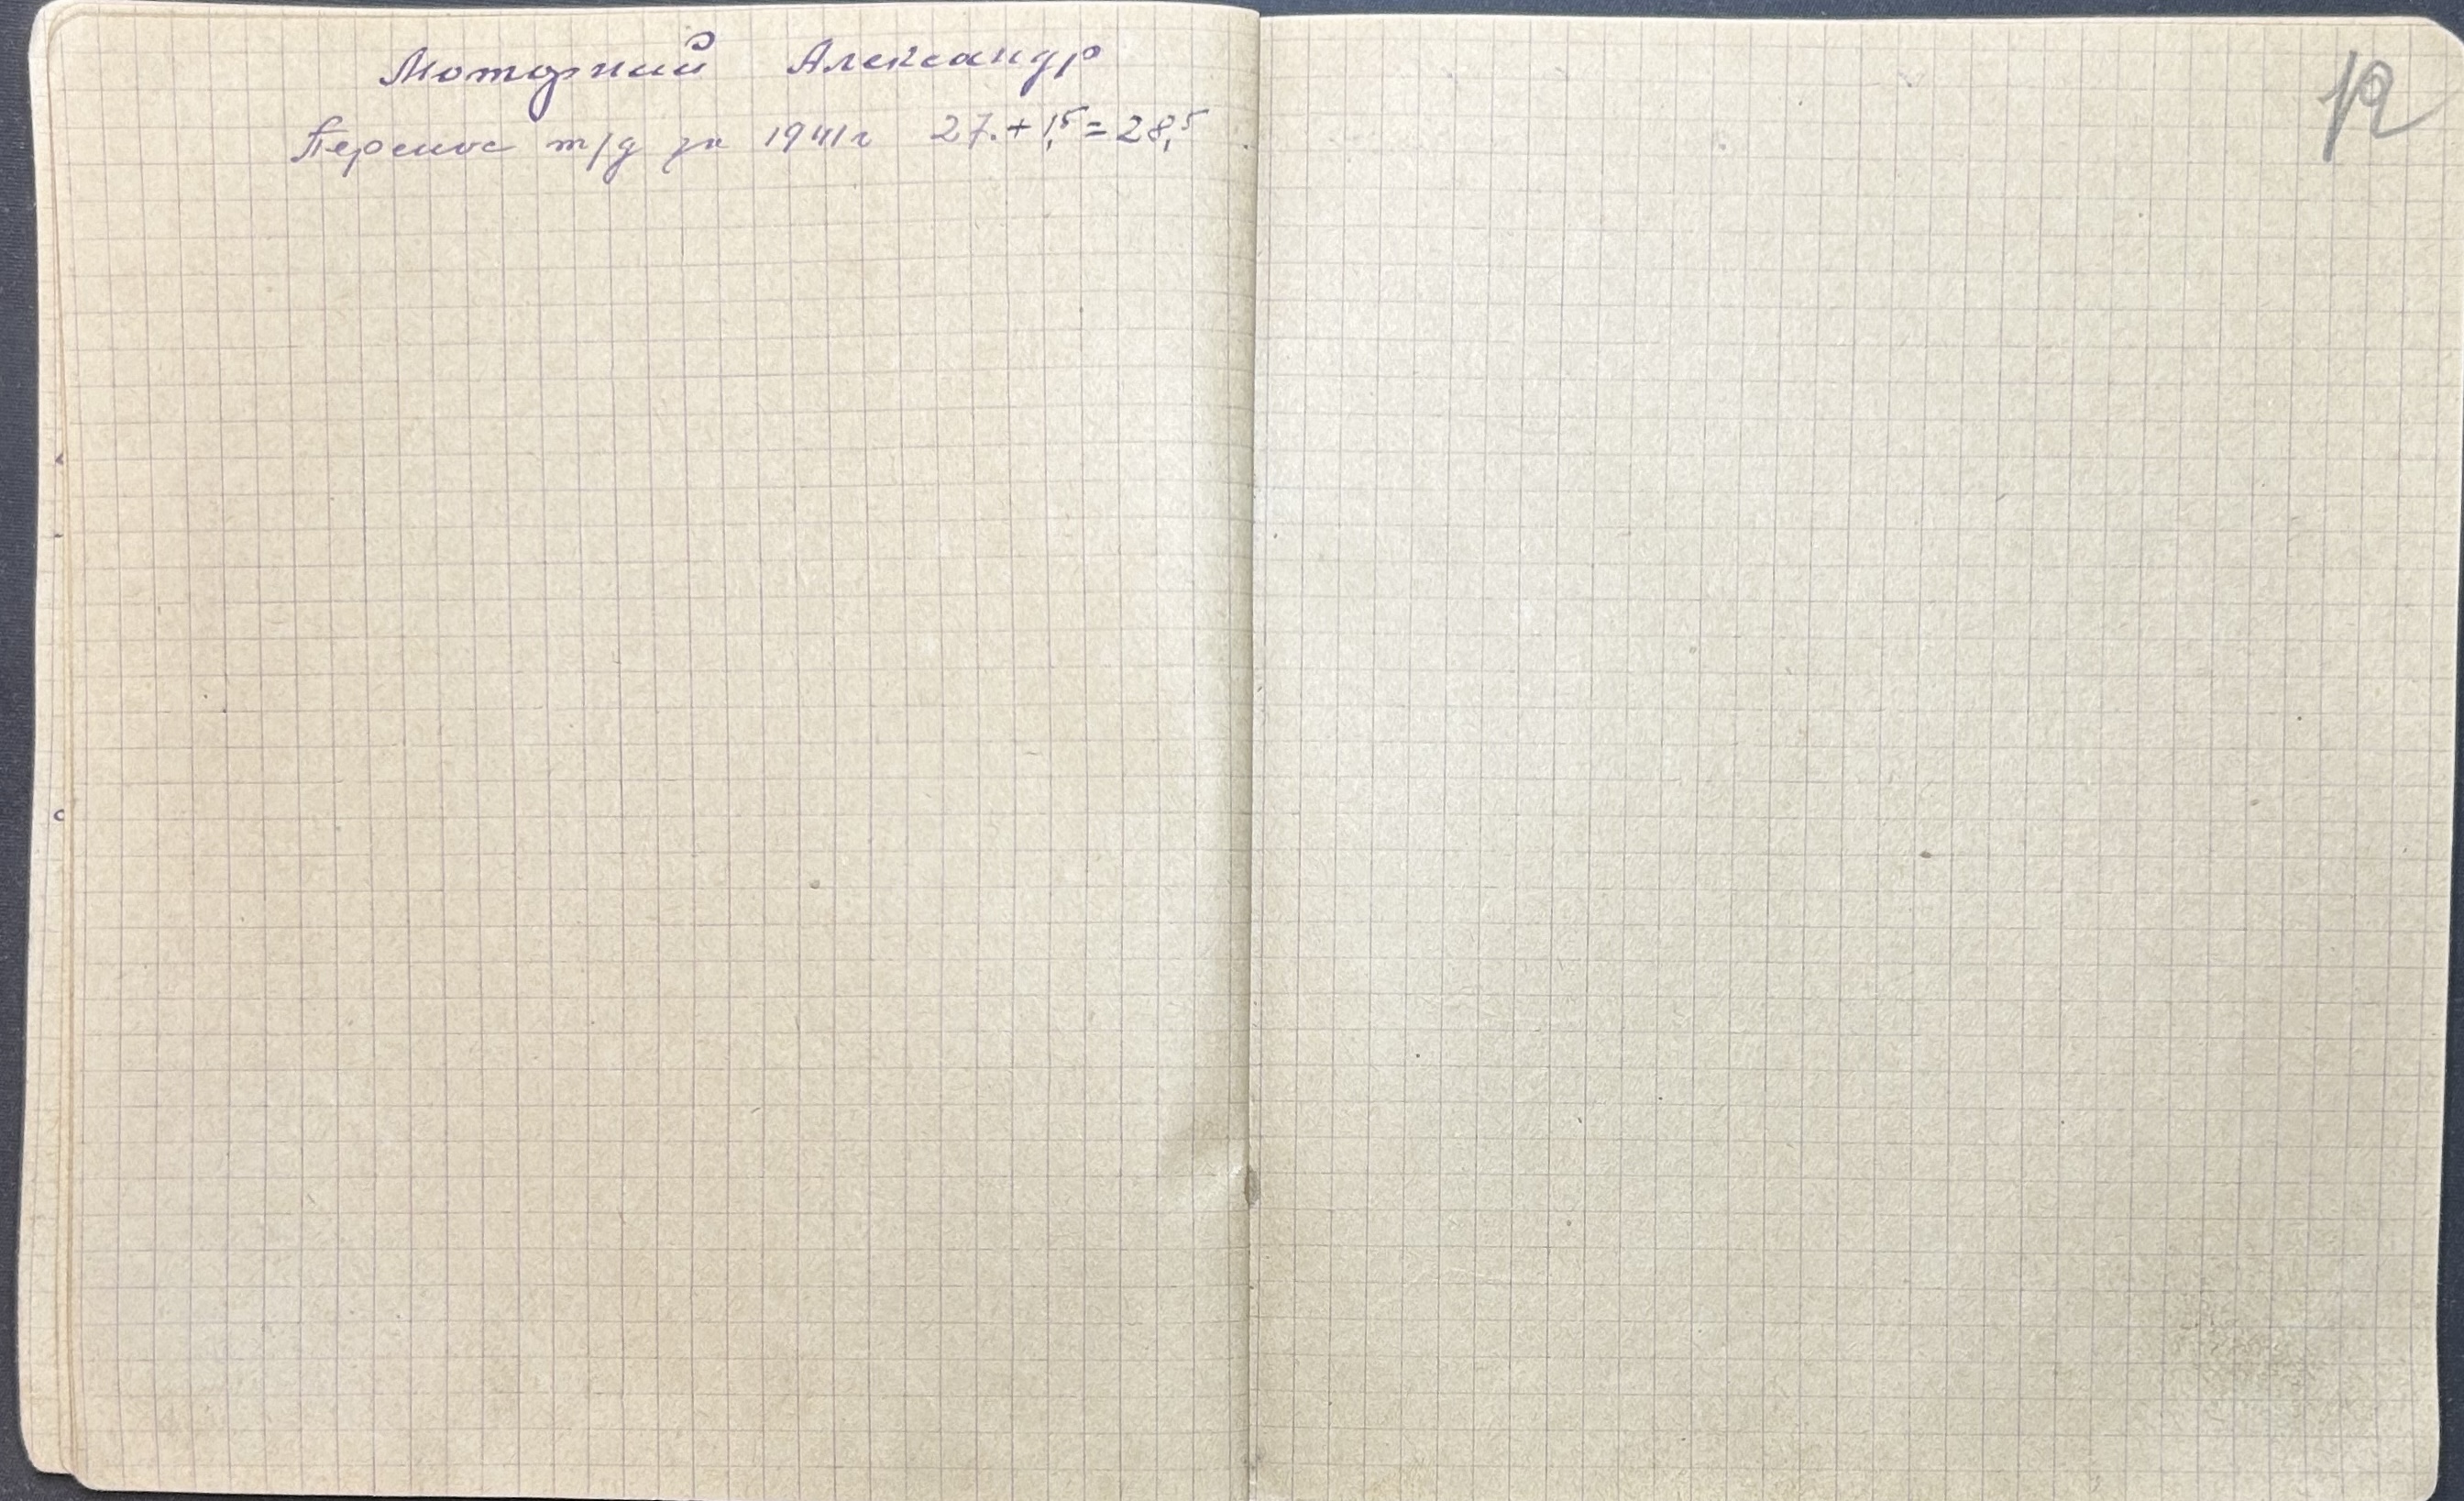 Моторний Александр
Перенос т/д за 1941г 27.+1,5=28,5
12